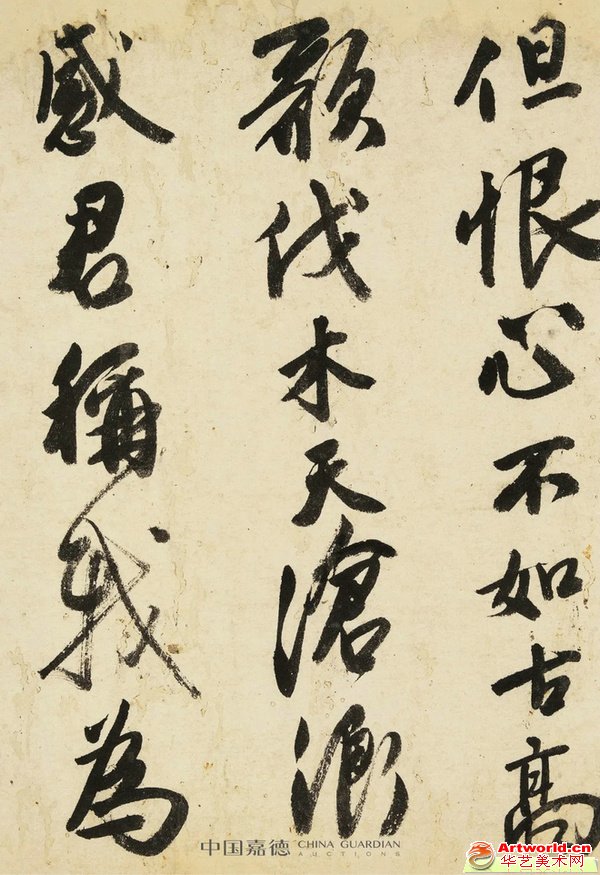 但恨心不如古高
歌伐木天滄
感君稱我為
中国嘉德 CHINA GUARDIAN
AUCTIONS
Artworld.cn
华艺美术网